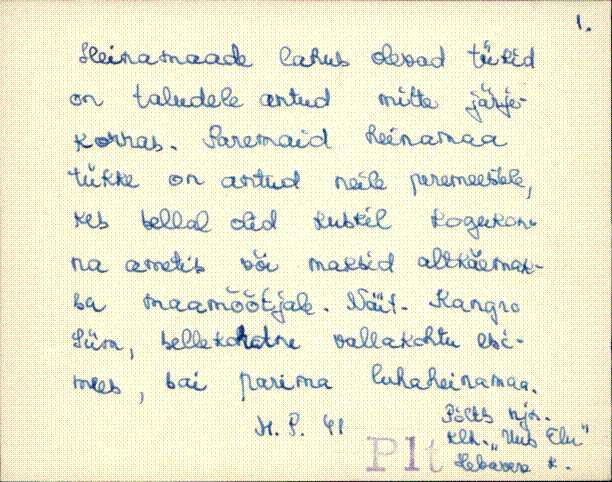 1.
Heinamaade lahus olevad tükid
on taludele antud mitte järje-
korras. Paremaid heinamaa
tükke on antud neile peremeestele,
kes sellal olid kuskil kogukon-
na ametis või maksid altkäemak-
su maamõõtjale. Näit. Kangro
Siim, sellekohatne vallakohtu esi-
mees, sai parima luhaheinamaa.
H. P. 41
Põlts rjn.
klh. „Uus Elu"
Lebavere k.
Plt